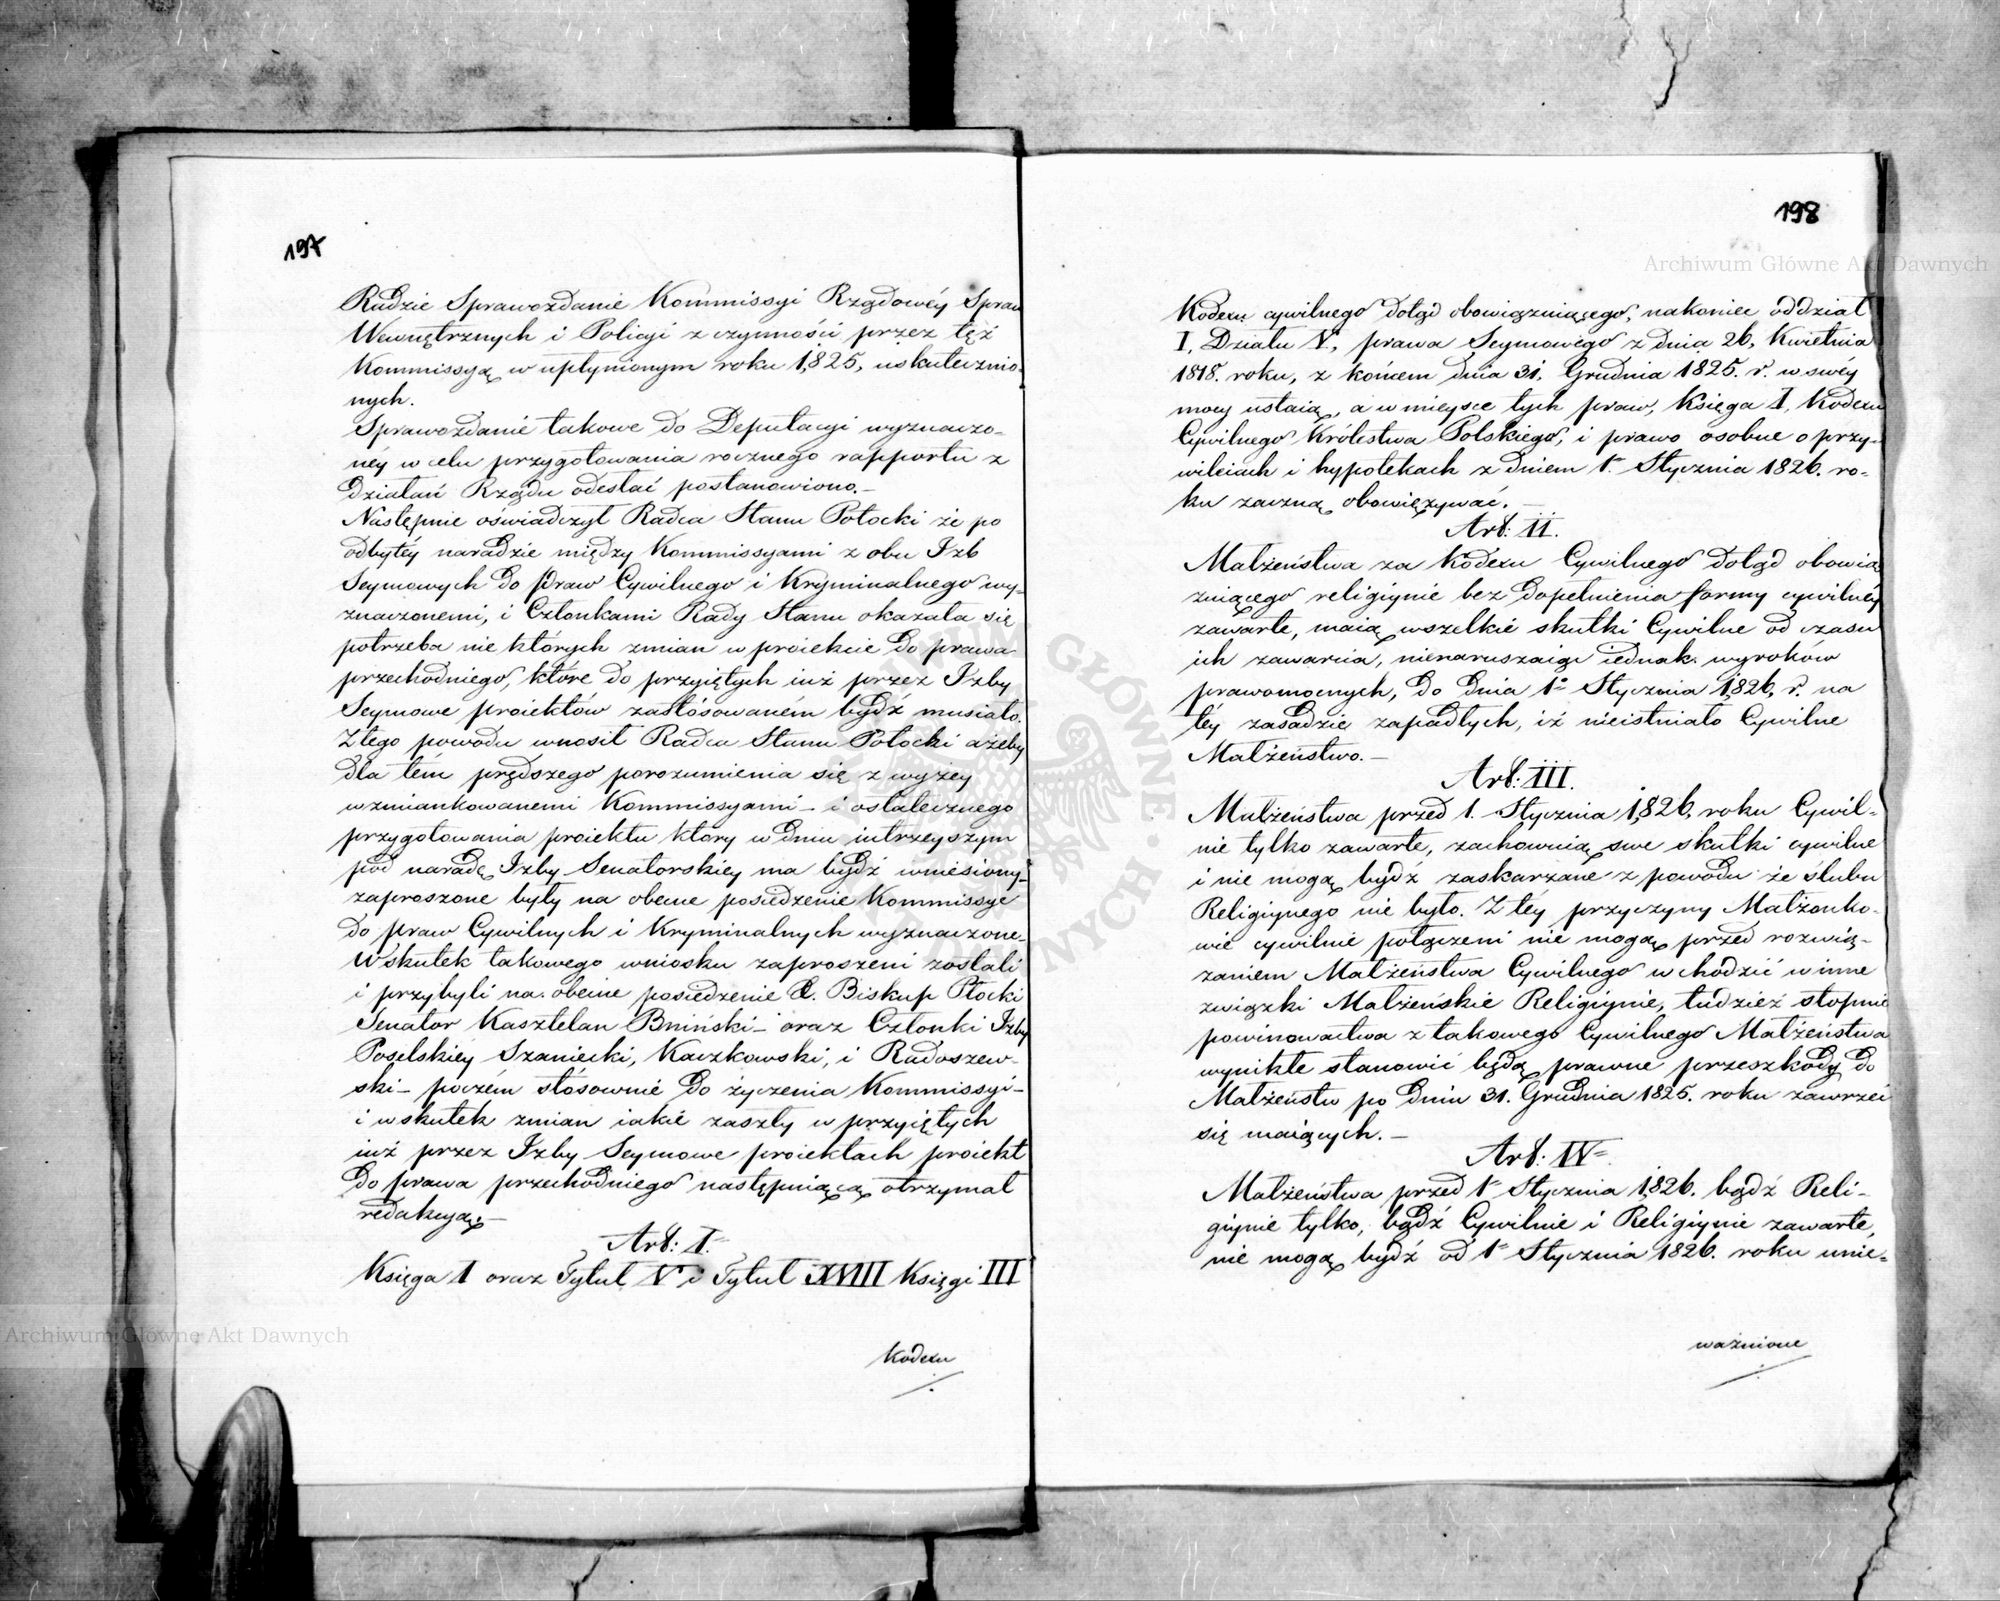 197
Radzie Sprawozdanie Kommissyi Rządowéy Spraw
Wewnętrznych i Policyi z czynności przez też
Kommissyą w upłynionym roku 1,825, uskutecznio-
nych.
Sprawozdanie takowe do Deputacyi wyznaczo-
néy w celu przygotowania rocznego rapportu z
Działań Rządu odesłać postanowiono.—
Następnie oświadczył Radca Stanu Potocki że po
odbytéy naradzie między Kommissyami z obu Izb
Seymowych do praw Cywilnego i Kryminalnego wy-
znaczonemi, i Członkami Rady Stanu okazała się
potrzeba nie których zmian w proiekcie do prawa
przechodniego, które do przyiętych iuż przez Izby
Seymowe proiektów zastósowaném bydź musiało.
Z tego powodu wnosił Radca Stanu Potocki ażeby
dla tém prędszego porozumienia się z wyżey
wzmiankowanemi Kommissyami – i ostatecznego
przygotowania proiektu który w dniu iutrzeyszym
pod naradę Izby Senatorskiey ma bydź wniesiony,–
zaproszone były na obecne posiedzenie Kommissye
do praw Cywilnych i Kryminalnych wyznaczone.
Wskutek takowego wniosku zaproszeni zostali
i przybyli na obecne posiedzenie Biskup Płocki
Senator Kasztelan Bniński – oraz Członki Izby
Poselskiéy Szaniecki, Kaczkowski, i Radoszew-
ski – poczém stósownie do życzenia Kommissyi –
i w skutek zmian iakie zaszły w przyiętych
iuż przez Izby Seymowe proiektach proiekt
do prawa przechodniego następuiącą otrzymał
redakcyą: —
Art: I.
Księga I oraz Tytuł V i Tytuł XVIII Księgi III
Kodexu
198
Kodexu cywilnego dotąd obowiązuiącego, nakoniec oddział
I, Działu V, prawa Seymowego z dnia 26, Kwietnia
1818. roku, z końcem dnia 31, Grudnia 1825. r. w swéy
mocy ustaią, a w mieysce tych praw, Księga I, Kodexu
Cywilnego Królestwa Polskiego, i prawo osobne o przy-
wileiach i hypotekach z dniem 1. Stycznia 1826. ro-
ku zaczną obowięzywać. —
Art: II.
Małżeństwa za Kodexu Cywilnego dotąd obowią-
zuiącego religiynie bez dopełnienia formy cywilnéy
zawarte, maią wszelkie skutki Cywilne od czasu
ich zawarcia, nienaruszaiąc iednak wyroków
prawomocnych, do dnia 1o Stycznia 1,826, r. na
téy zasadzie zapadłych, iż nieistniało Cywilne
Małżeństwo.—
Art: III.
Małżeństwa przed 1. Stycznia 1,826, roku Cywil-
nie tylko zawarte, zachowuią swe skutki cywilne
i nie mogą bydź zaskarżane z powodu że ślubu
Religiynego nie było. Z téy przyczyny Małżonko-
wie cywilnie połączeni nie mogą przed rozwią-
zaniem Małżeństwa Cywilnego wchodzić w inne
związki Małżeńskie Religiynie, tudzież stopnie
powinowactwa z takowego Cywilnego Małżeństwa
wynikłe stanowić będą prawne przeszkody do
Małżeństw po dniu 31. Grudnia 1825. roku zawrzeć
się maiących. —
Art: IV
Małżeństwa przed 1 Stycznia 1,826. bądź Reli-
giynie tylko, bądź Cywilnie i Religiynie zawarte,
nie mogą bydź od 1 Stycznia 1826. roku unie-
ważnione
Archiwum Główne Akt Dawnych
Archiwum Główne Akt Dawnych